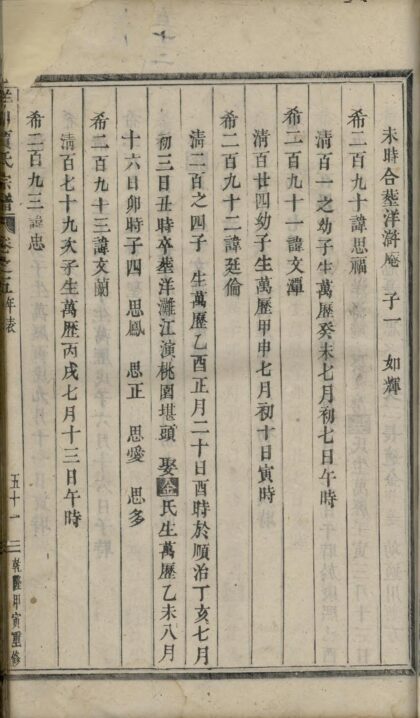 未時合塟洋澥庵　子一　如輝
希二百九十諱思福
清百一之幼子生萬歷癸未七月初七日午時
希二百九十一諱文潭
清百廿四幼子生萬歷甲申七月初十日寅時
希二百九十二諱廷倫
清二百之四子　生萬歷乙酉正月二十日酉時於順治丁亥七月
初三日丑時卒塟洋灘江演桃園堪頭　娶金氏生萬歷乙未八月
十六日卯時子四　思鳳　思正　思愛　思多
希二百九十三諱文蘭
清百七十九次子生萬歷丙戌七月十三日午時
希二百九三諱忠
氏宗譜　卷之五　年表　五十一　二　乾隆甲寅重修